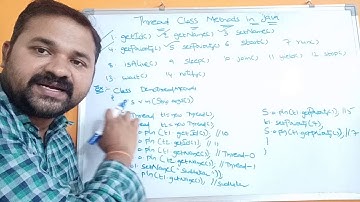 Thread Class Methods in Java
1. getId() 2. getName() 3. setName()
4. getPriority() 5. setPriority() 6. start() 7. run()
8. isAlive() 9. sleep() 10. join() 11. yield() 12. stop()
13. wait() 14. notify()
Class
s v m (String args[])
Thread t1 = new Thread();
Thread = new Thread();
pln(t1.getId()); //10
pln( getId()); //11
pln(t1.getName()); //Thread-0
pln(t2.getName()); //Thread-1
t1.setName("
pln(t1.getName()); //
S.o.pln(t1.getPriority()); //5
t1.setPriority(7);
S.o.pln(t1.getPriority()); //7
}
}